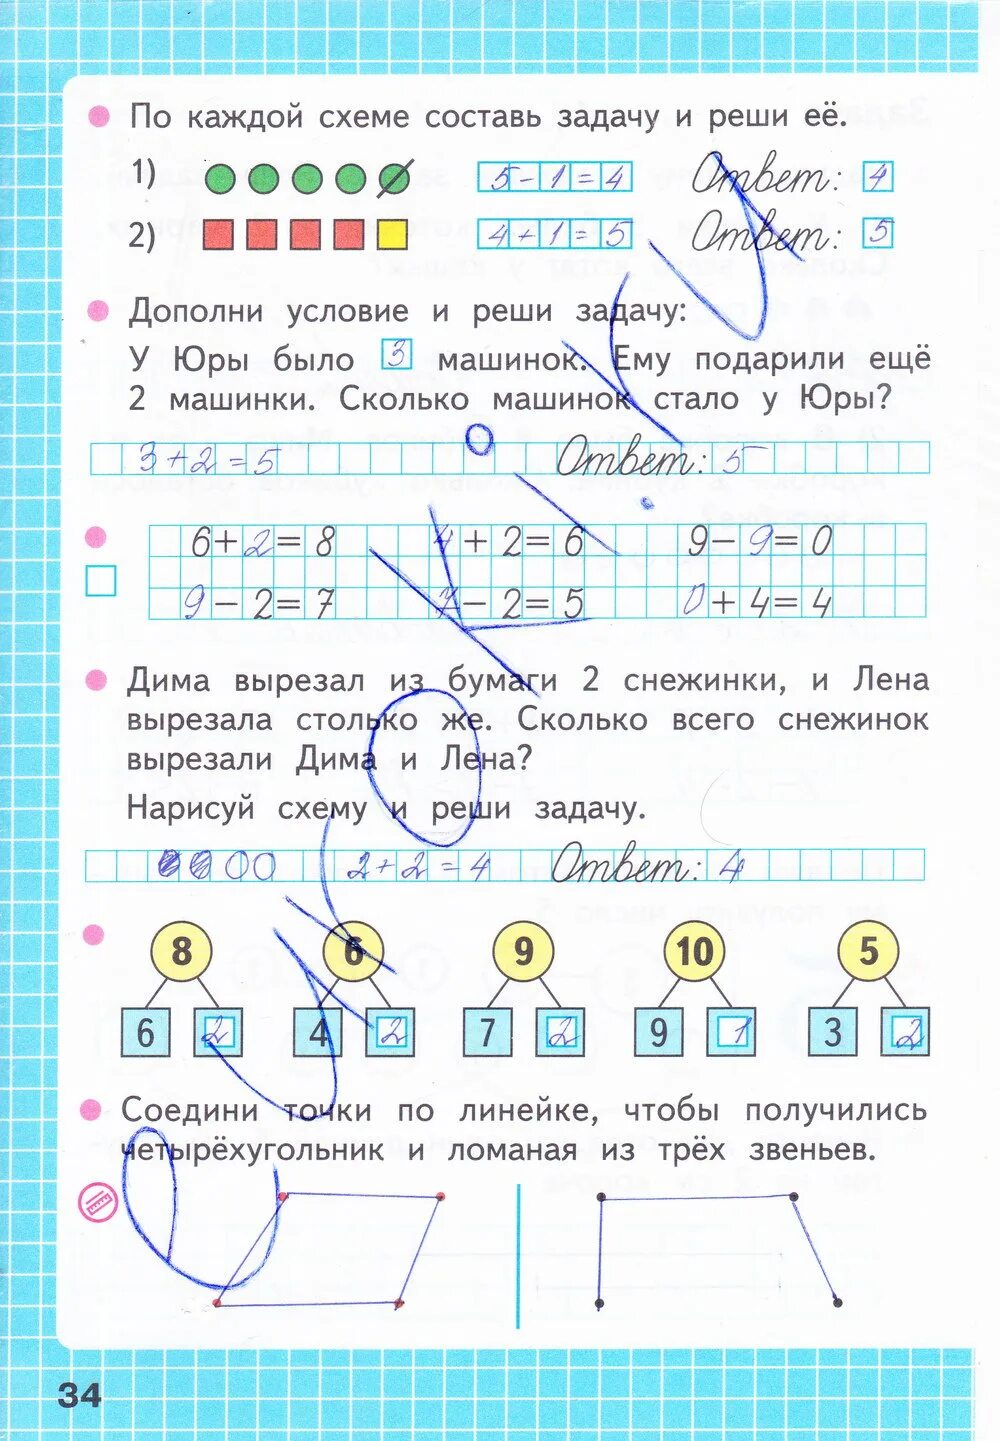 По каждой схеме составь задачу и реши её.
1) 5-1=4 Ответ: 4
2) 4+1=5 Ответ: 5
Дополни условие и реши задачу:
У Юры было 3 машинок. Ему подарили ещё
2 машинки. Сколько машинок стало у Юры?
3+2=5 Ответ: 5
6+2=8 4+2=6 9-9=0
9-2=7 7-2=5 0+4=4
Дима вырезал из бумаги 2 снежинки, и Лена
вырезала столько же. Сколько всего снежинок
вырезали Дима и Лена?
Нарисуй схему и реши задачу.
2+2=4 Ответ: 4
8 6 9 10 5
6 2 4 2 7 2 9 1 3 2
Соедини точки по линейке, чтобы получились
четырёхугольник и ломаная из трёх звеньев.
34